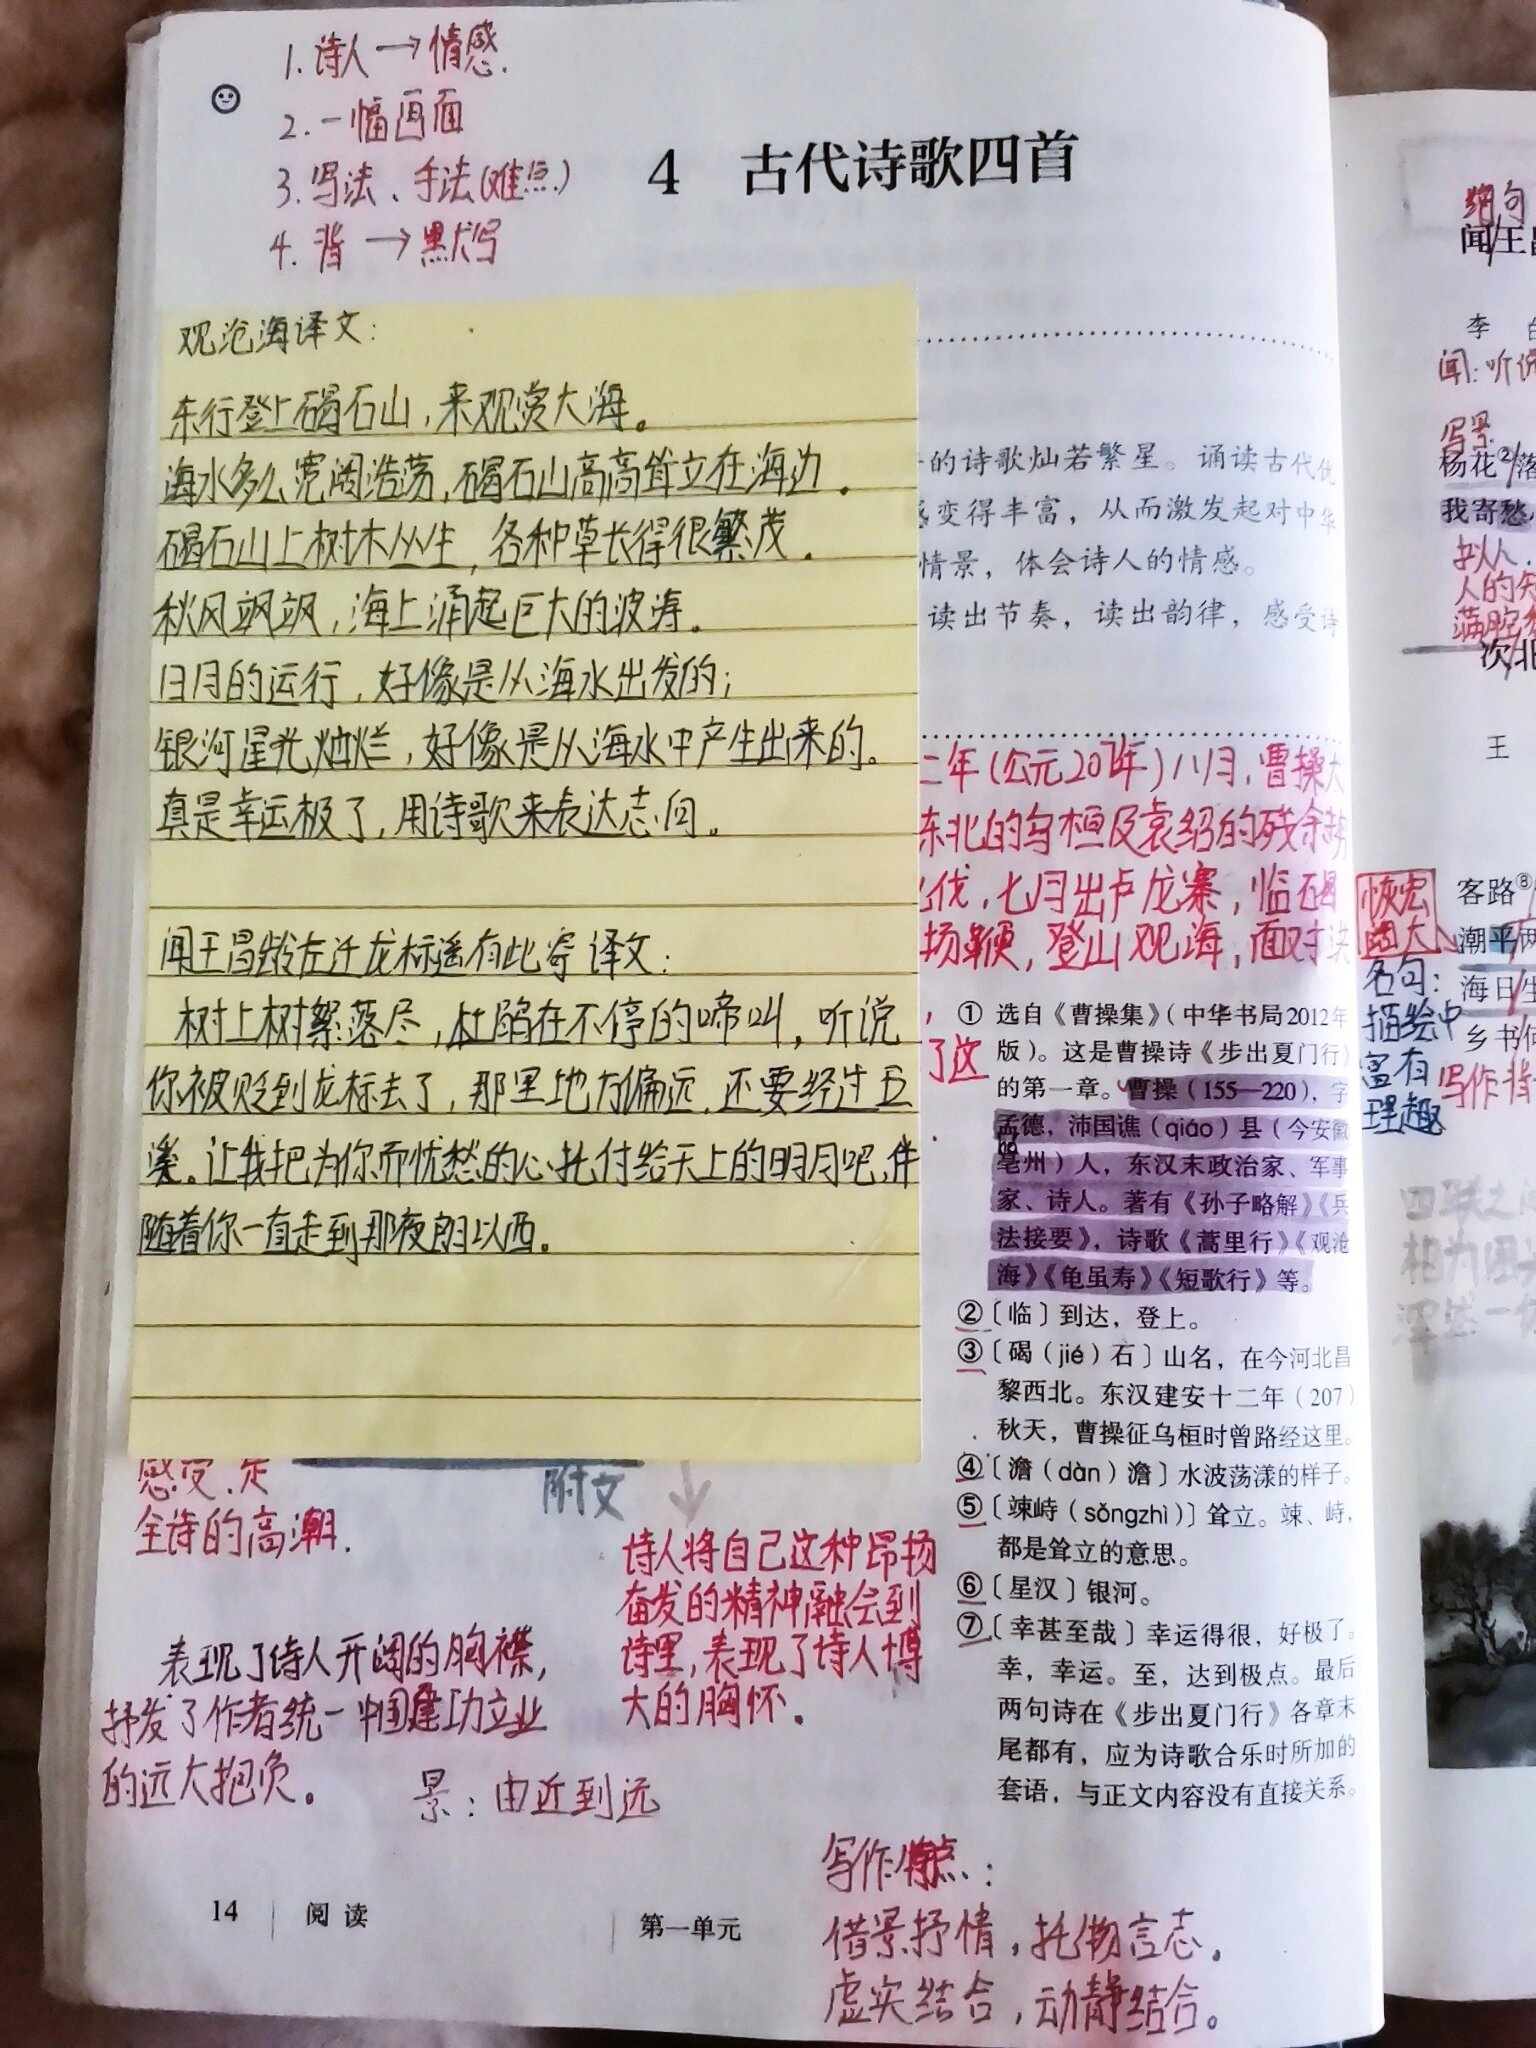 1.诗人→情感.
2.一幅画面
3.写法、手法(难点)
4.背→默写
4 古代诗歌四首
观沧海译文:
东行登上碣石山,来观赏大海。
海水多么宽阔浩荡,碣石山高高耸立在海边.
碣石山上树木丛生,各种草长得很繁茂.
秋风飒飒,海上涌起巨大的波涛.
日月的运行,好像是从海水出发的;
银河星光灿烂,好像是从海水中产生出来的。
真是幸运极了,用诗歌来表达志向。
闻王昌龄左迁龙标遥有此寄 译文:
树上树絮落尽,杜鹃在不停的啼叫,听说
你被贬到龙标去了,那里地方偏远,还要经过五
溪。让我把为你而忧愁的心托付给天上的明月吧,伴
随着你一直走到那夜郎以西。
的诗歌灿若繁星。诵读古代优
变得丰富,从而激发起对中华
情景,体会诗人的情感。
读出节奏,读出韵律,感受诗
二年(公元207年)八月,曹操大
东北的乌桓及袁绍的残余势
伐,七月出卢龙寨,临碣
扬鞭,登山观海,面对洪
了这
①选自《曹操集》(中华书局2012年
版)。这是曹操诗《步出夏门行》
的第一章。曹操(155—220),字
孟德,沛国谯(qiáo)县(今安徽
亳州)人,东汉末政治家、军事
家、诗人。著有《孙子略解》《兵
法接要》,诗歌《蒿里行》《观沧
海》《龟虽寿》《短歌行》等。
②〔临〕到达,登上。
③〔碣(jié)石〕山名,在今河北昌
黎西北。东汉建安十二年(207)
秋天,曹操征乌桓时曾路经这里。
④〔澹(dàn)澹〕水波荡漾的样子。
⑤〔竦峙(sǒngzhì)〕耸立。竦、峙,
都是耸立的意思。
⑥〔星汉〕银河。
⑦〔幸甚至哉〕幸运得很,好极了。
幸,幸运。至,达到极点。最后
两句诗在《步出夏门行》各章末
尾都有,应为诗歌合乐时所加的
套语,与正文内容没有直接关系。
感受,是
全诗的高潮.
附文
诗人将自己这种昂扬
奋发的精神融会到
诗里,表现了诗人博
大的胸怀.
表现了诗人开阔的胸襟,
抒发了作者统一中国建功立业
的远大抱负。
景:由近到远
写作特点:
借景抒情,托物言志.
虚实结合,动静结合。
14 阅读 第一单元
绝句
闻王昌
李白
闻:听说
写景
杨花②落
我寄愁
拟人.
人的
满腔
次北
王
恢宏
阔大
客路⑧
潮平两
名句:
描绘中
富有
理趣
海日生
乡书何
写作背
四联之
相为因
浑然一体